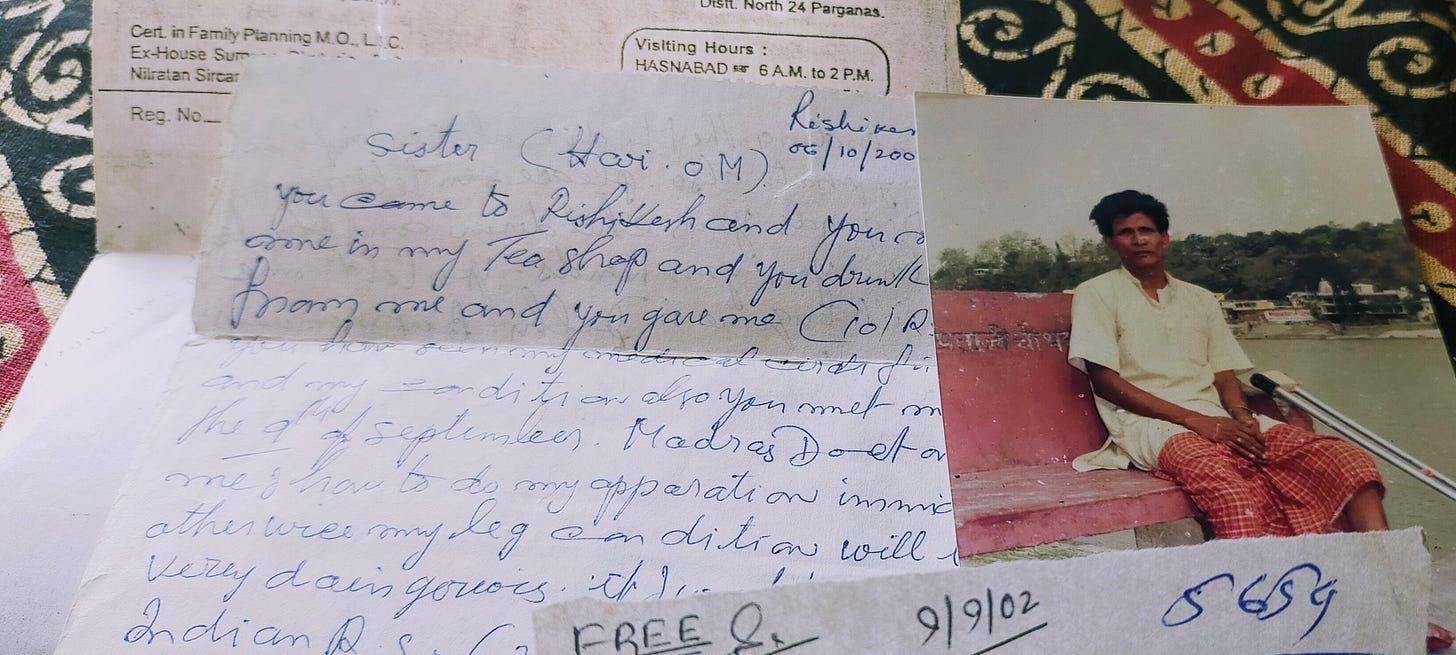 Distt. North 24 Parganas.
Cert. in Family Planning M.O., L.
C.
Ex-House
Nilratan Sircar
Reg. No.
Visiting Hours :
HASNABAD ☞ 6 A.M. to 2 P.M.
Rishikes
06/10/200
Sister (Hari. OM)
you came to Rishikesh and you
me in my Tea shop and you drunk
from me and you gave me (101 R
you have seen my medical
and my condition also you met m
the 9th of september. Madras Doctor
me's how to do my apparation immic
otherwice my leg condition will
very daingourois. if
Indian R.s.
FREE
9/9/02
5654